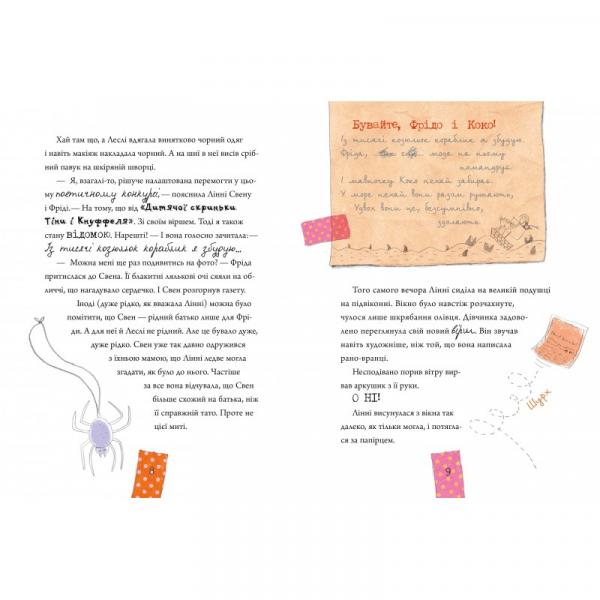 Хай там що, а Леслі вдягала винятково чорний одяг
і навіть макіяж накладала чорний. А на шиї в неї висів сріб-
ний павук на шкіряній шворці.
— Я, взагалі-то, рішуче налаштована перемогти у цьо-
му поетичному конкурсі, — пояснила Лінні Свену
і Фріді.— На тому, від «Дитячої скриньки
Тіни і Кнуффеля». Зі своїм віршем. Тоді я також
стану ВІДОМОЮ. Нарешті! — І вона голосно зачитала:—
Із тисячі козюлок кораблик я збудую...
— Можна мені ще раз подивитись на фото? — Фріда
притислася до Свена. Її блакитні лялькові очі сяяли на об-
личчі, що нагадувало сердечко. І Свен розгорнув газету.
Іноді (дуже рідко, як вважала Лінні) можна було
помітити, що Свен — рідний батько лише для Фрі-
ди. А для неї й Леслі не рідний. Але це бувало дуже,
дуже рідко. Свен уже так давно одружився
з їхньою мамою, що Лінні ледве могла
згадати, як було до нього. Частіше
за все вона відчувала, що Свен
більше схожий на батька, ніж
її справжній тато. Проте не
цієї миті.
8
Бувайте, Фрідо і Коко!
Із тисячі козюлок кораблик я збудую.
Фріда, моде на ньому
командує.
І мавпочку Коко нехай забирає.
У море нехай вони разом рушають,
Удвох вони це, безсумнівно,
здолають.
Того самого вечора Лінні сиділа на великій подушці
на підвіконні. Вікно було навстіж розчахнуте,
чулося лише шкрябання олівця. Дівчинка задово-
лено переглянула свій новий вірш. Він звучав
навіть художніше, ніж той, що вона написала
рано-вранці.
Несподівано порив вітру вир-
вав аркушик з її руки.
О НІ!
Лінні висунулася з вікна так
далеко, як тільки могла, і потягла-
ся за папірцем.
Шурх
9